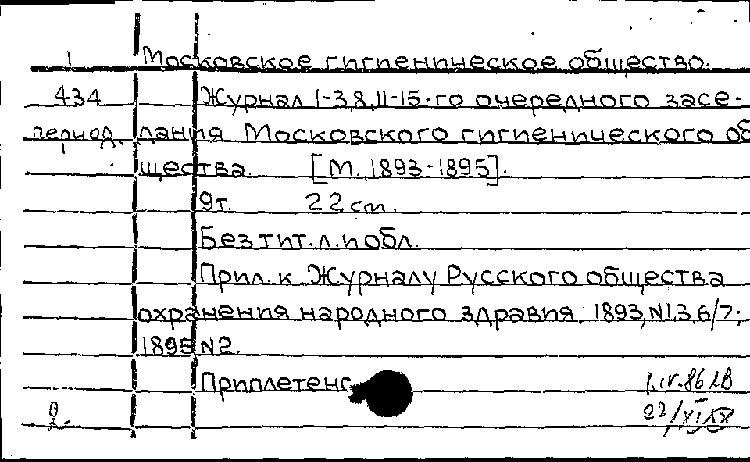 1 Московское гигиеническое общество.
434 Журнал 1-3,8,11-15-го очередного засе-
период. дания Московского гигиенического об
щества. [М. 1893-1895].
9т. 22 cm.
Без тит. л. и обл.
Прил. к Журналу Русского общества
охранения народного здравия. 1893, N1,3,6/7;
1895 N2.
Приплетено
1.IV.86 ЛВ
2. 22/XI